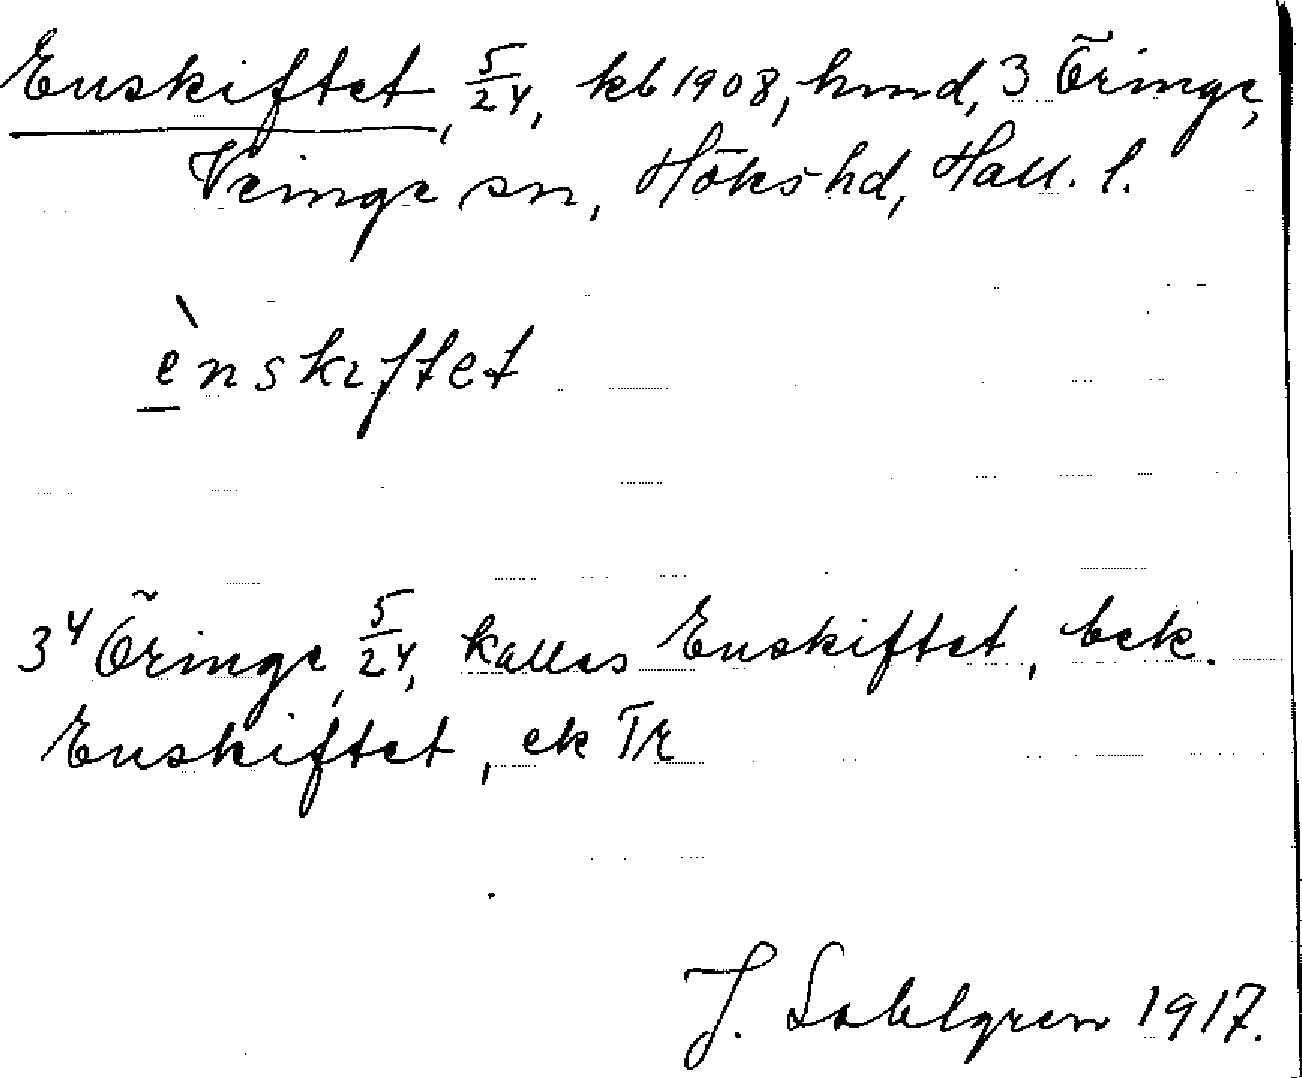 Enskiftet, 5/24, kb 1908, hmd, 3 Öringe,
Veinge sn, Höks hd, Hall. l.
ènskıftet
3⁴ Öringe, 5/24, kallas Enskiftet, bek.
Enskiftet, ek Tr
J. Sahlgren 1917.